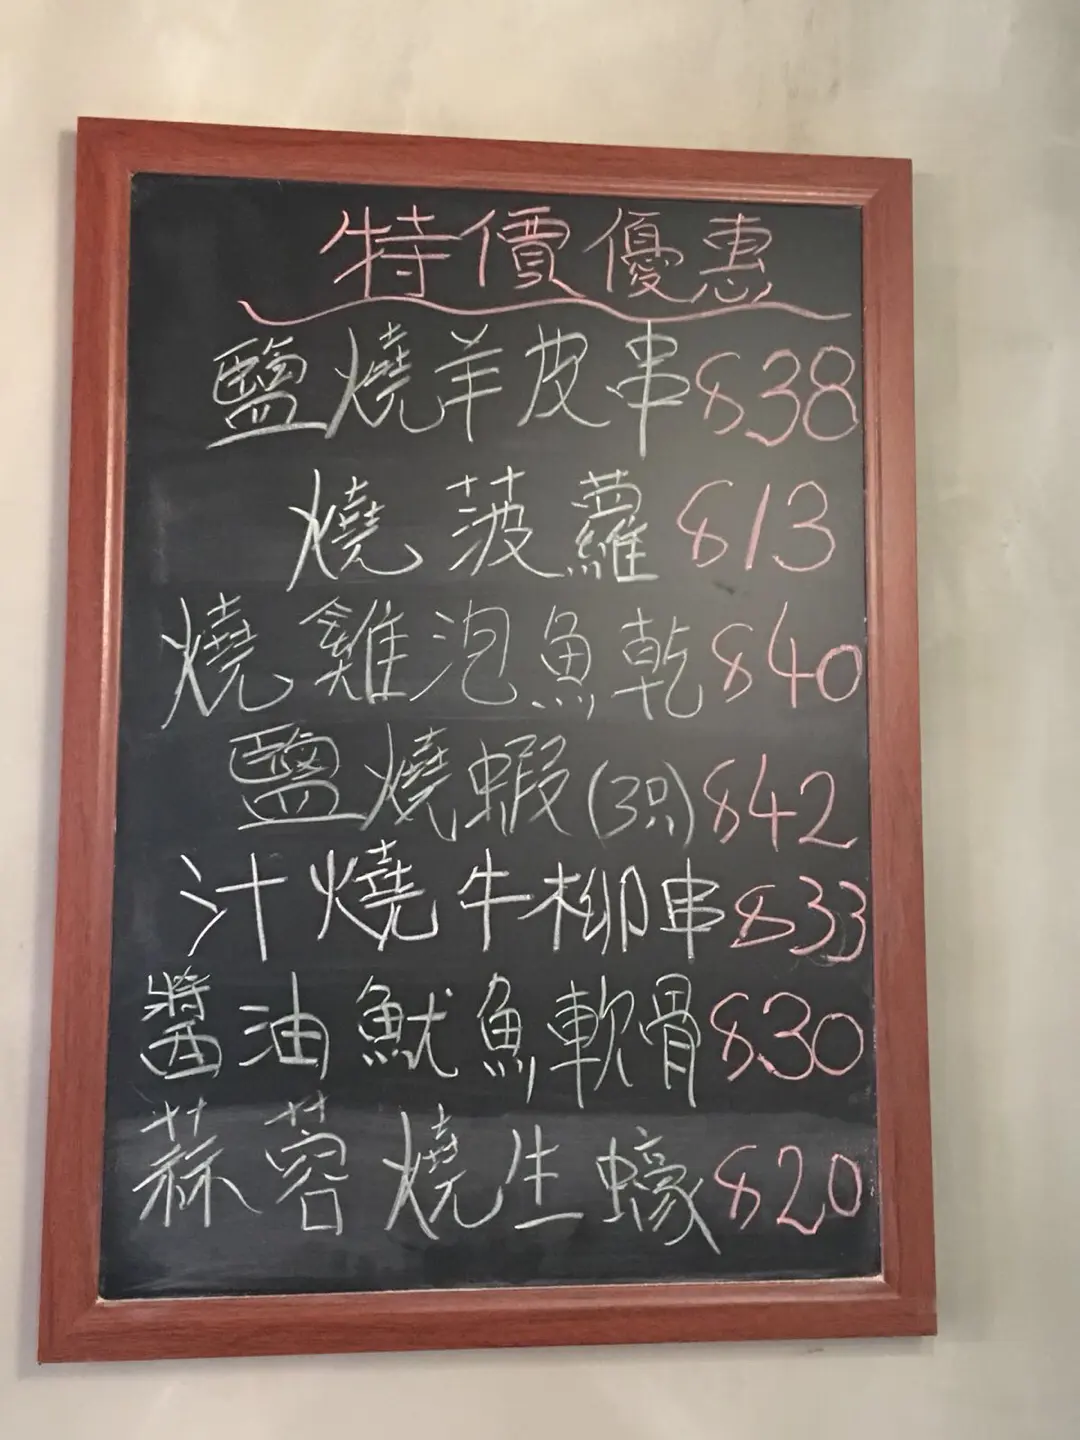 特價優惠
鹽燒羊皮串 $38
燒菠蘿 $13
燒雞泡魚乾 $40
鹽燒蝦(3只) $42
汁燒牛柳串 $33
醬油魷魚軟骨 $30
蒜蓉燒生蠔 $20